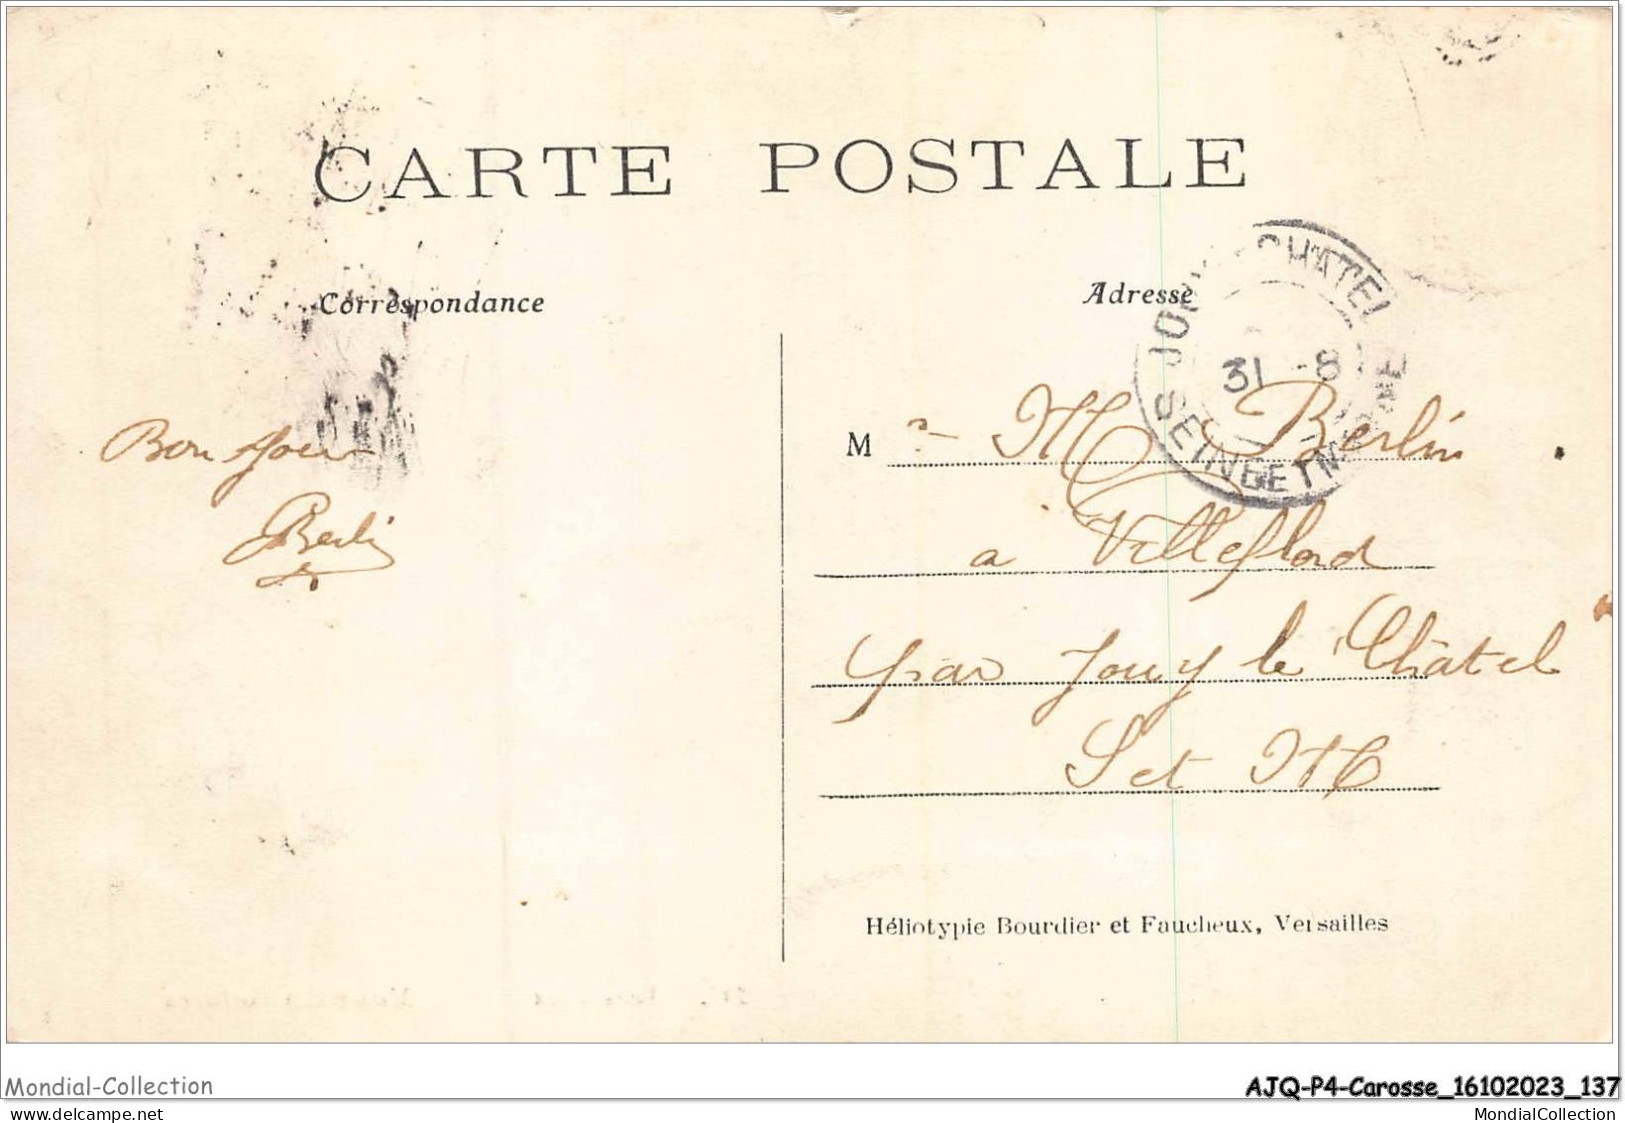 CARTE POSTALE
Correspondance
Adresse
CHATEL
31 -8
SEINE ET M
Bonjour
Berlin
M r M Berlin
a Villeflord
par Jouy le Châtel
S et M
Héliotypie Bourdier et Faucheux, Versailles
Mondial-Collection
AJQ-P4-Carosse_16102023_137
www.delcampe.net
MondialCollection